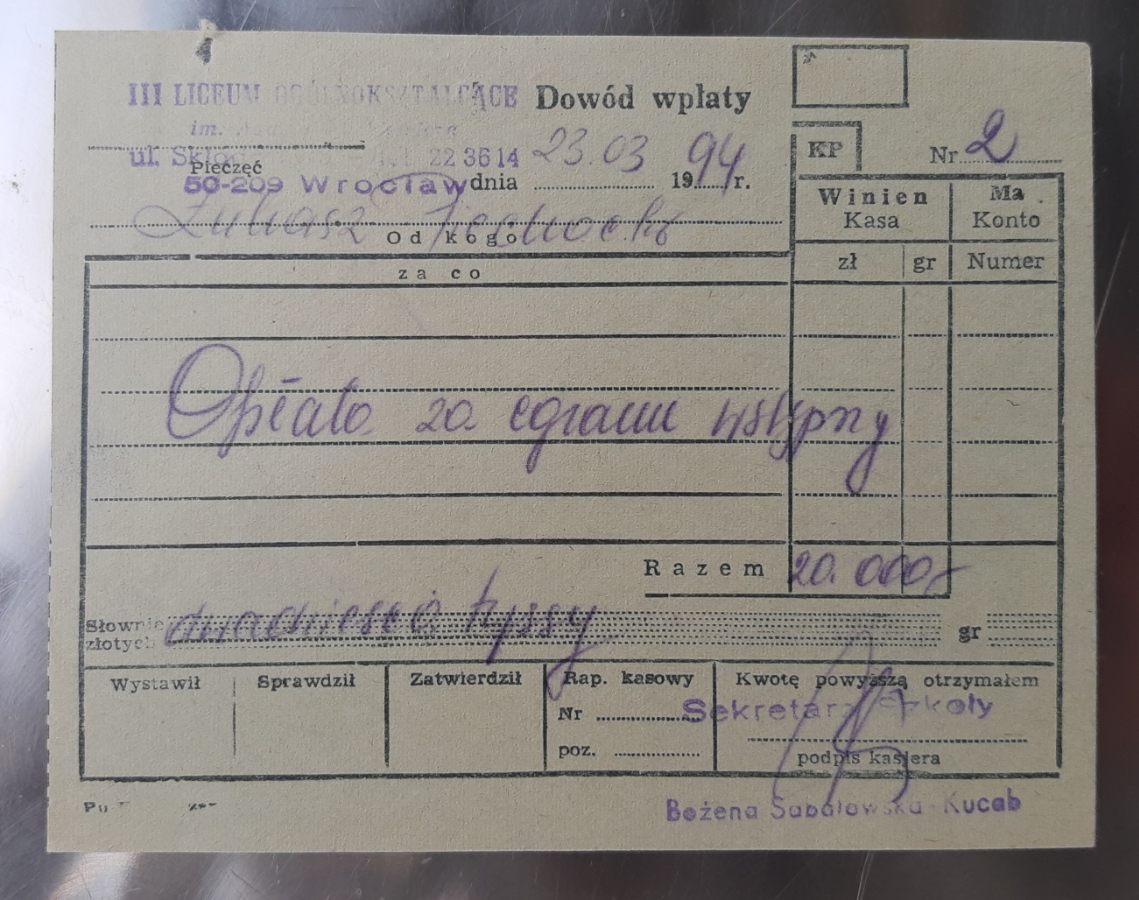 III LICEUM OGÓLNOKSZTAŁCĄCE Dowód wpłaty
im.
ul. 22 36 14 23.03 1994 r.
Pieczęć
50-209 Wrocław dnia
KP Nr 2
Łukasz
Od kogo
Winien Ma
Kasa Konto
za co zł gr Numer
Opłata za egzamin wstępny
Razem 20.000,-
Słownie
złotych dwadzieścia tysięcy gr
Wystawił Sprawdził Zatwierdził Rap. kasowy Kwotę powyższą otrzymałem
Nr Sekretarz Szkoły
poz. podpis kasjera
Bożena Sabatowska-Kucab